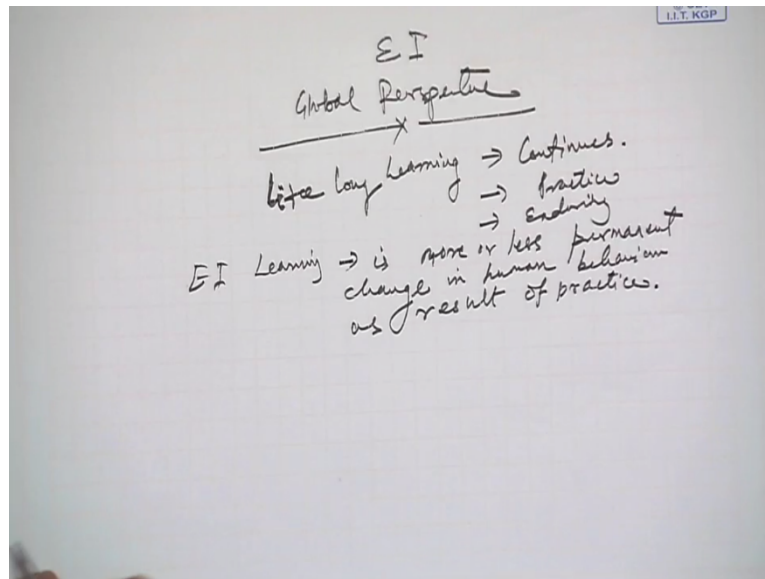 I.I.T. KGP
EI
Global Perspective
Life Long Learning → Continues.
→ Practice
→ Enduring
EI Learning → is more or less permanent
change in human behaviour
as result of practice.